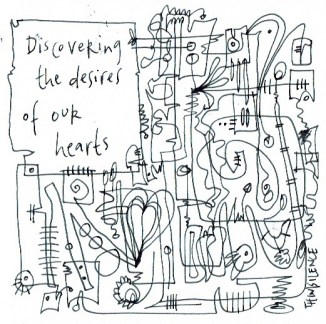 Discovering
the desires
of our
hearts